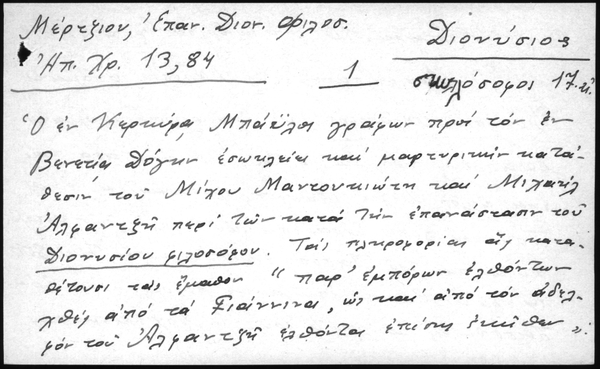 Μέρτζιου, Ἐπαν. Διον. Φιλοσ.
Διονύσιος
Ἠπ. Χρ. 13, 84
1
σκυλόσοφος 17. αἰ.
Ὁ ἐν Κερκύρᾳ Μπάϋλος γράφων πρὸς τὸν ἐν
Βενετίᾳ Δόγην ἐσωκλείει καὶ μαρτυρικὴν κατά-
θεσιν τοῦ Μίχου Μαντουκιώτη καὶ Μιχαὴλ
Ἀλφαντζῆ περὶ τῶν κατὰ τὴν ἐπανάστασιν τοῦ
Διονυσίου φιλοσόφου. Τὰς πληροφορίας ἃς κατα-
θέτουσι τὰς ἔμαθον "παρ' ἐμπόρων ἐλθόντων
χθὲς ἀπὸ τὰ Γιάννινα, ὡς καὶ ἀπὸ τὸν ἀδελ-
φόν τοῦ Ἀλφαντζῆ ἐλθόντα ἐπίσης ἐκεῖθεν".